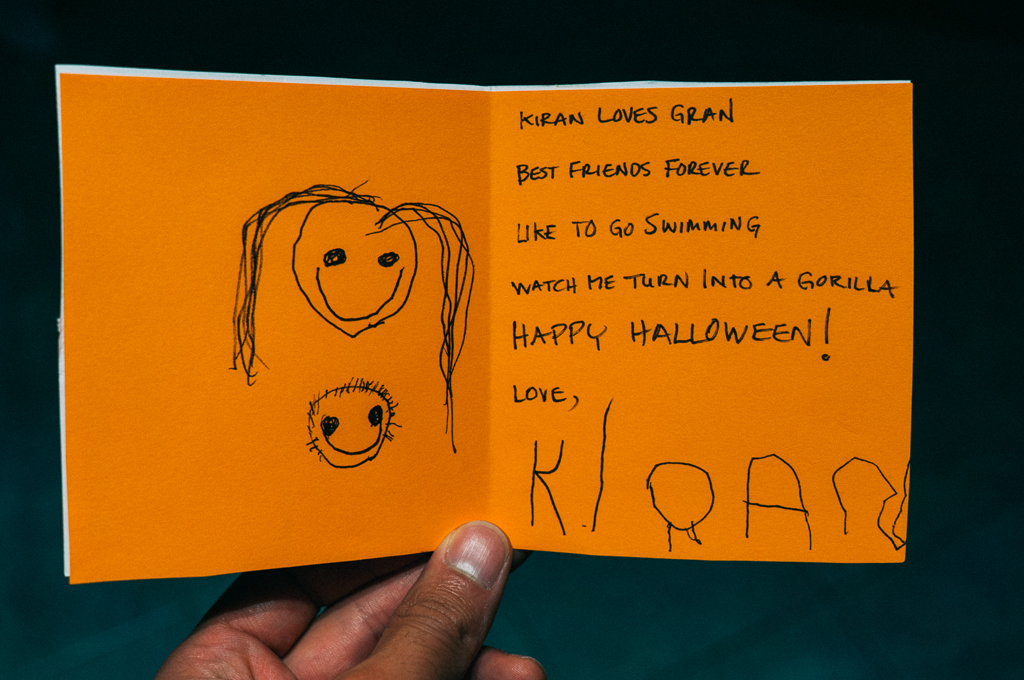 KIRAN LOVES GRAN
BEST FRIENDS FOREVER
LIKE TO GO SWIMMING
WATCH ME TURN INTO A GORILLA
HAPPY HALLOWEEN!
LOVE,
KIRAN